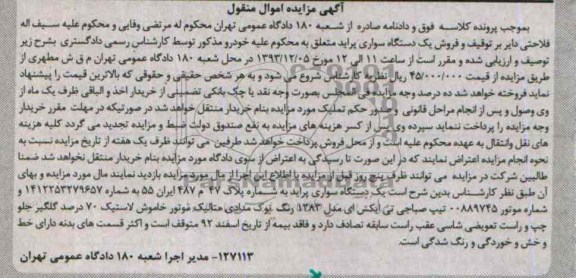 آگهی مزایده اموال منقول
بموجب پرونده کلاسه فوق و دادنامه صادره از شعبه ۱۸۰ دادگاه عمومی تهران محکوم له مرتضی وفایی و محکوم علیه سیف اله
فلاحتی دایر بر توقیف و فروش یک دستگاه سواری پراید متعلق به محکوم علیه خودرو مذکور توسط کارشناس رسمی دادگستری بشرح زیر
توصیف و ارزیابی شده و مقرر است از ساعت ۱۱ الی ۱۲ مورخ ۱۳۹۳/۱۲/۰۵ در محل شعبه ۱۸۰ دادگاه عمومی تهران م ق ش مطهری از
طریق مزایده از قیمت ۴۵/۰۰۰/۰۰۰ ریال نظریه کارشناس شروع می شود و به هر شخص حقیقی و حقوقی که بالاترین قیمت را پیشنهاد
نماید فروخته خواهد شد ده درصد وجه مزایده فی المجلس بصورت وجه نقد یا چک بانکی تضمینی از خریدار اخذ و الباقی ظرف یک ماه از
وی وصول و پس از انجام مراحل قانونی و صدور حکم تملیک مورد مزایده بنام خریدار منتقل خواهد شد در صورتیکه در مهلت مقرر خریدار
وجه مزایده را پرداخت ننماید سپرده وی پس از کسر هزینه های مزایده به نفع صندوق دولت ضبط و مزایده تجدید می گردد کلیه هزینه
های نقل وانتقال به عهده محکوم علیه است و از محل فروش پرداخت خواهد شد طرفین می توانند ظرف یک هفته از تاریخ مزایده نسبت به
نحوه انجام مزایده اعتراض نمایند که در این صورت تا رسیدگی به اعتراض از سوی دادگاه مورد مزایده بنام خریدار منتقل نخواهد شد ضمنا
طالبین شرکت در مزایده می توانند ظرف پنج روز قبل از مزایده با اطلاع این اجرا از مال مورد مزایده بازدید نمایند مال مورد مزایده و بهای
آن طبق نظر کارشناس بدین شرح است یک دستگاه سواری پراید به شماره پلاک ۴۷ م ۴۸۷ ایران ۵۵ به شماره ۱۴۱۲۲۵۳۲۷۹۶۵۷ و
شماره موتور ۰۰۸۸۹۷۴۵ تیپ صباجی تی ایکس ای مدل ۱۳۸۳ رنگ نوک مدادی متالیک موتور خاموش لاستیک ۷۰ درصد گلگیر جلو
چپ و راست تعویضی شاسی عقب راست سابقه تصادف دارد و فاقد بیمه از تاریخ اسفند ۹۲ متوقف است و اکثر قسمت های بدنه دارای خط
و خش و خوردگی و رنگ شدگی است.
۱۲۷۱۱۳- مدیر اجرا شعبه ۱۸۰ دادگاه عمومی تهران